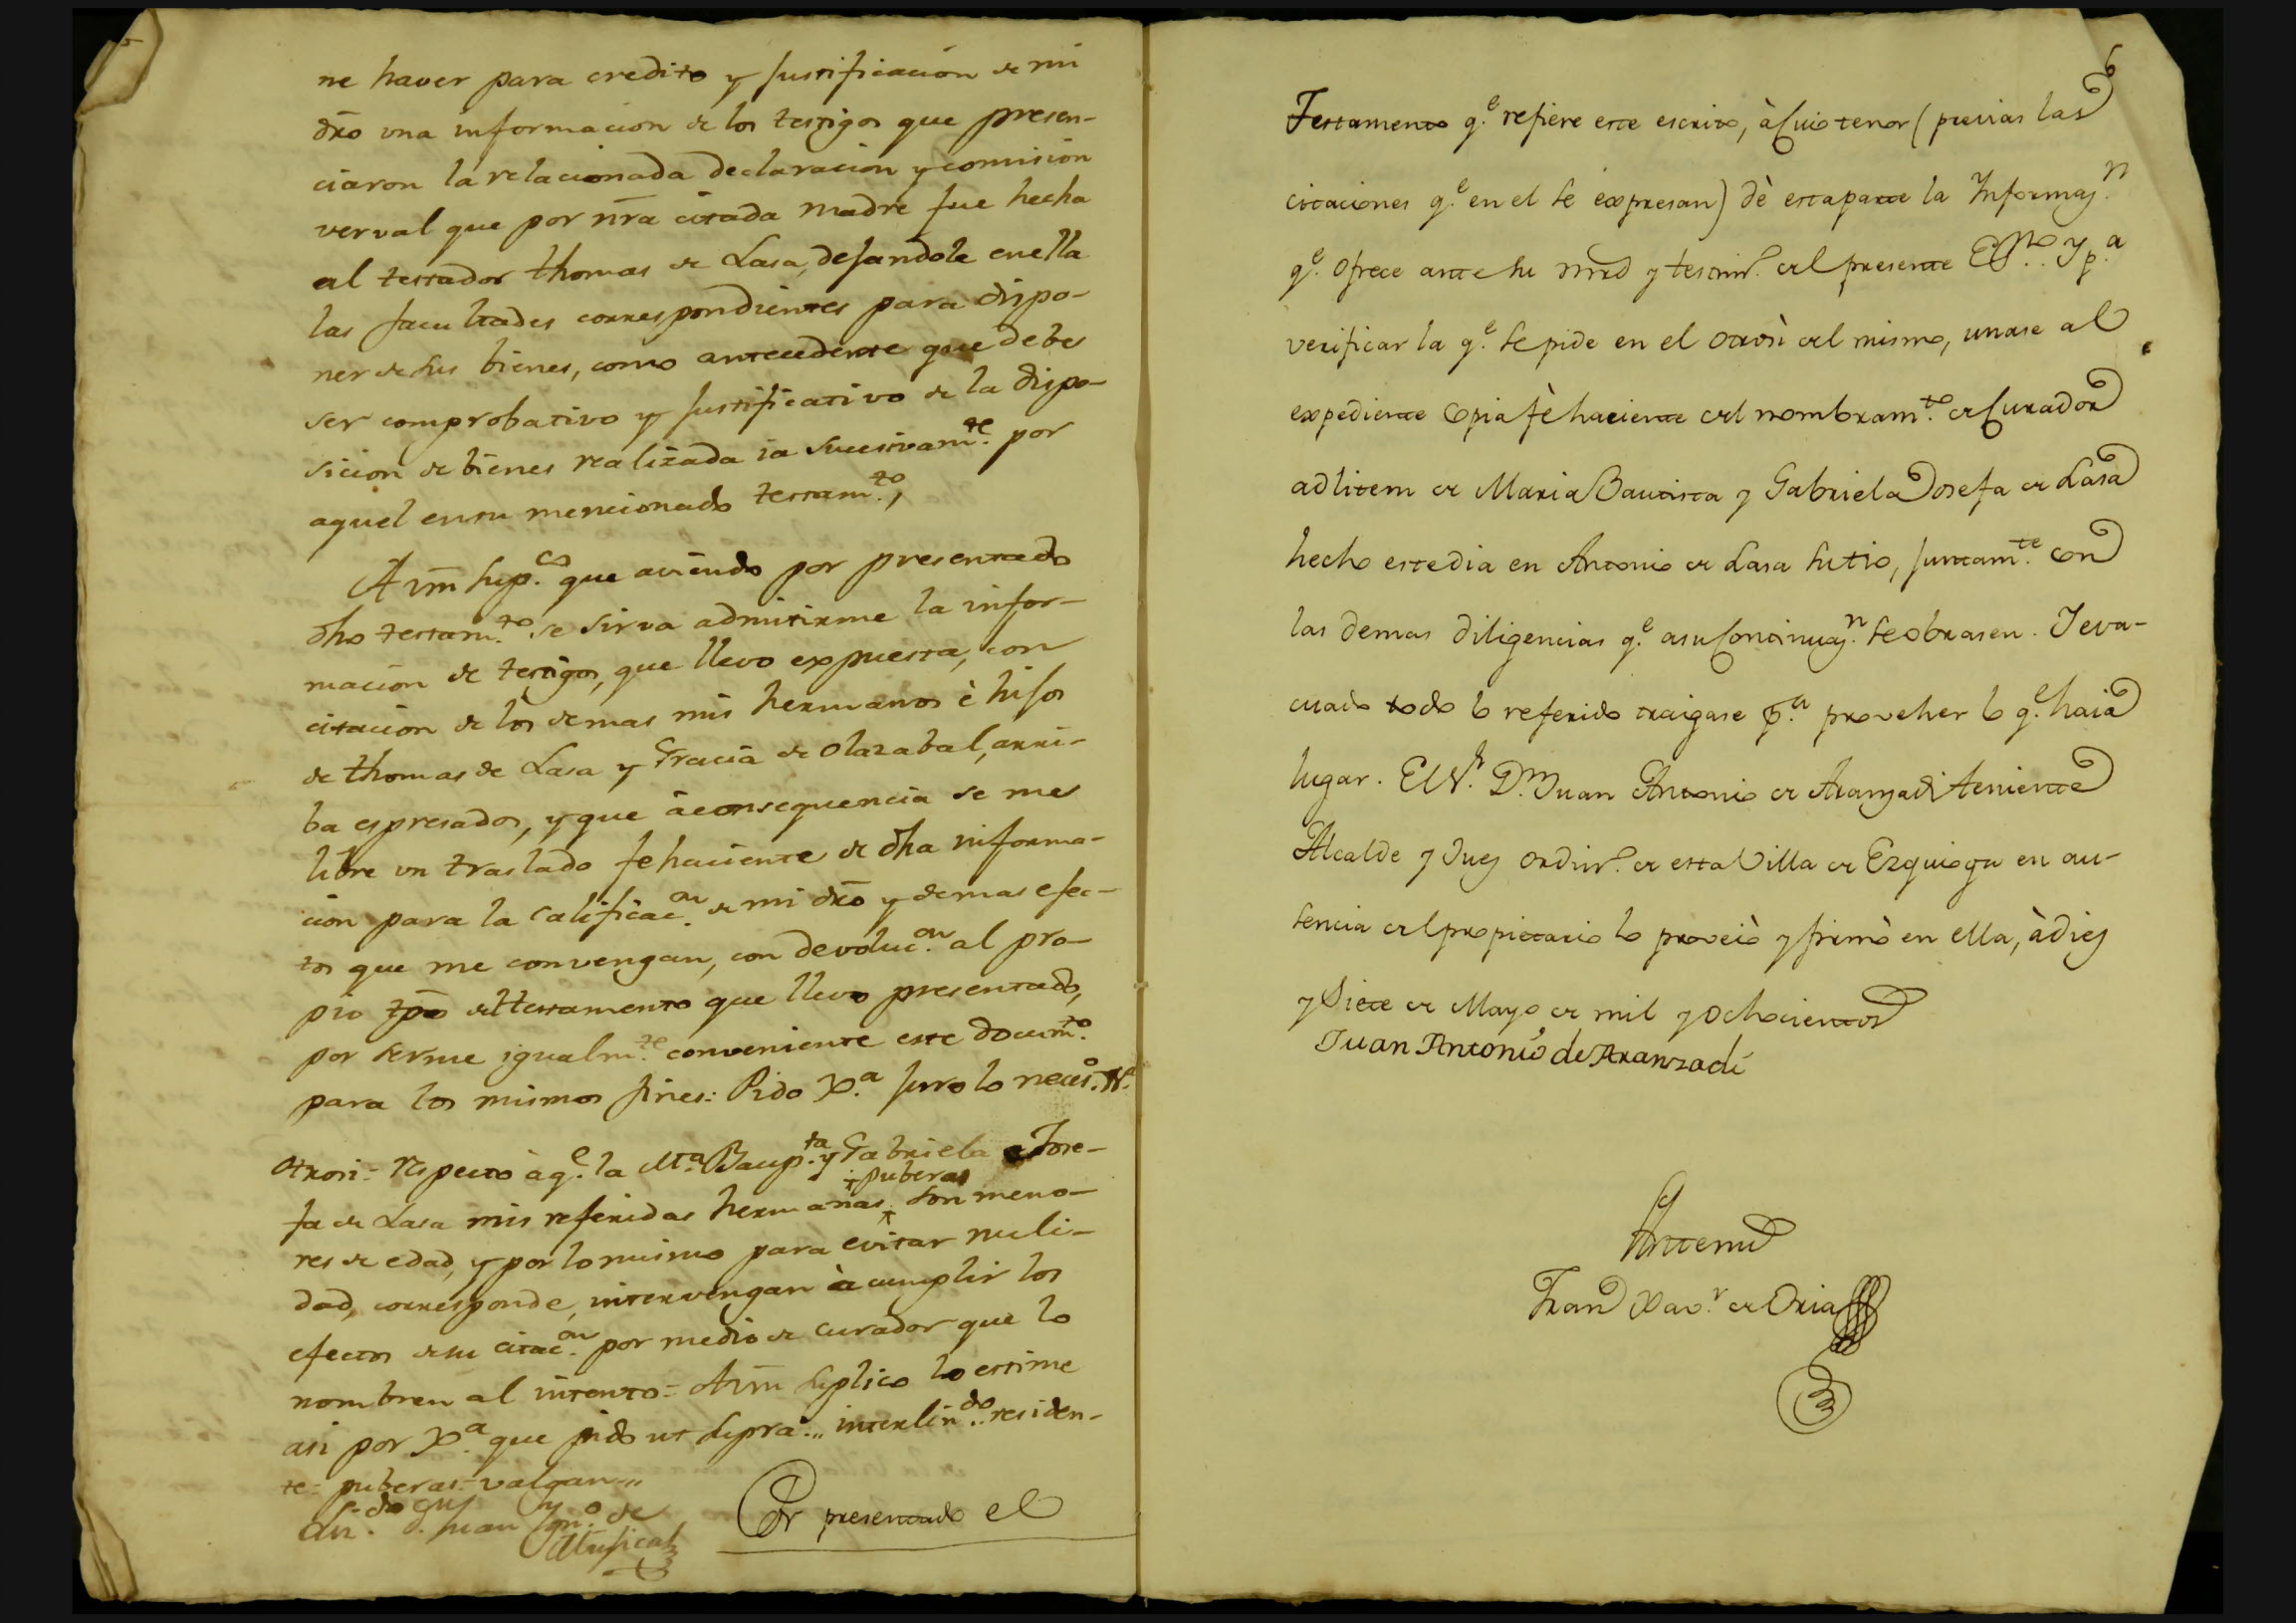 ne haver para credito y justificacion de mi
dro una informacion de los testigos que presen-
ciaron la relacionada declaracion y comision
verval que por nra citada madre fue hecha
al testador thomas de Lasa, dejandole en ella
las facultades correspondientes para dispo-
ner de sus bienes, como antecedente que debe
ser comprobativo y justificativo de la dispo-
sicion de bienes realizada ia sucesivamte. por
aquel en su mencionado testamto.,
A vm supco. que aviendo por presentado
dho testamto. se sirva admitirme la infor-
macion de testigos, que llevo expuesta, con
citacion de los demas mis hermanos è hijos
de thomas de Lasa y Gracia de Olazabal, arri-
ba espresados, y que àconsequencia se me
libre un traslado fehaciente de dha informa-
cion para la calificacon. de mi dro y demas efec-
tos que me convengan, con devolucon. al pro-
pio tpo del testamento que llevo presentado,
por serme igualmte. conveniente este documto.
para los mismos fines: Pido Xa. juro lo neceso. Va.
Otrosi = Respecto àqe. la Ma. Baupta. y Gabriela Jose-
+ puberas
fa de Lasa mis referidas hermanas + son meno-
res de edad, y por lo mismo para evitar nuli-
dad, corresponde, intervengan à cumplir los
efectos de su citacon. por medio de curador que lo
nombren al intento = A vm suplico lo estime
asi por Xa. que pido ut supra = interlindo. residen-
te = puberas = valgan =
Lizdo. Dn. Juan Igno. de
Por presentado el
6
Testamento qe. refiere este escrito, à cuio tenor (previas las
citaciones qe. en el se expresan) dè esta parte la Informazn.
qe. ofrece ante su mrd y testimo. del presente Essno. Y pa.
verificar la qe. se pide en el otrosì del mismo, unase al
expediente copia fè haciente del nombramto. de Curador
adlitem de Maria Bautista y Gabriela Josefa de Lasa
hecho este dia en Antonio de Lasa su tio, juntamte. con
las demas diligencias qe. a su continuazn. se obrasen. Y eva-
cuado todo lo referido traigase pa. proveher lo qe. haia
lugar. El Sr. Dn. Juan Antonio de Aranzadi teniente
Alcalde y Juez ordino. de esta Villa de Ezquioga en au-
sencia del propietario lo proveiò y firmò en ella, à diez
y siete de Mayo de mil y ochocientos
Juan Antonio de Aranzadi
Antemi
Franco Xavr. de Oria